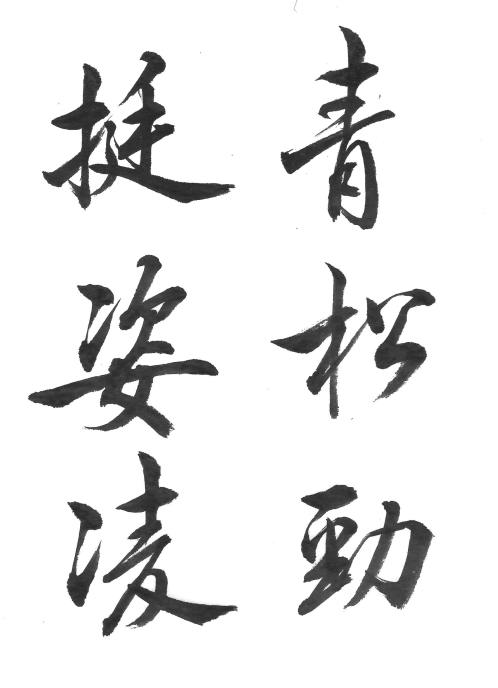 青松勁
挺姿凌